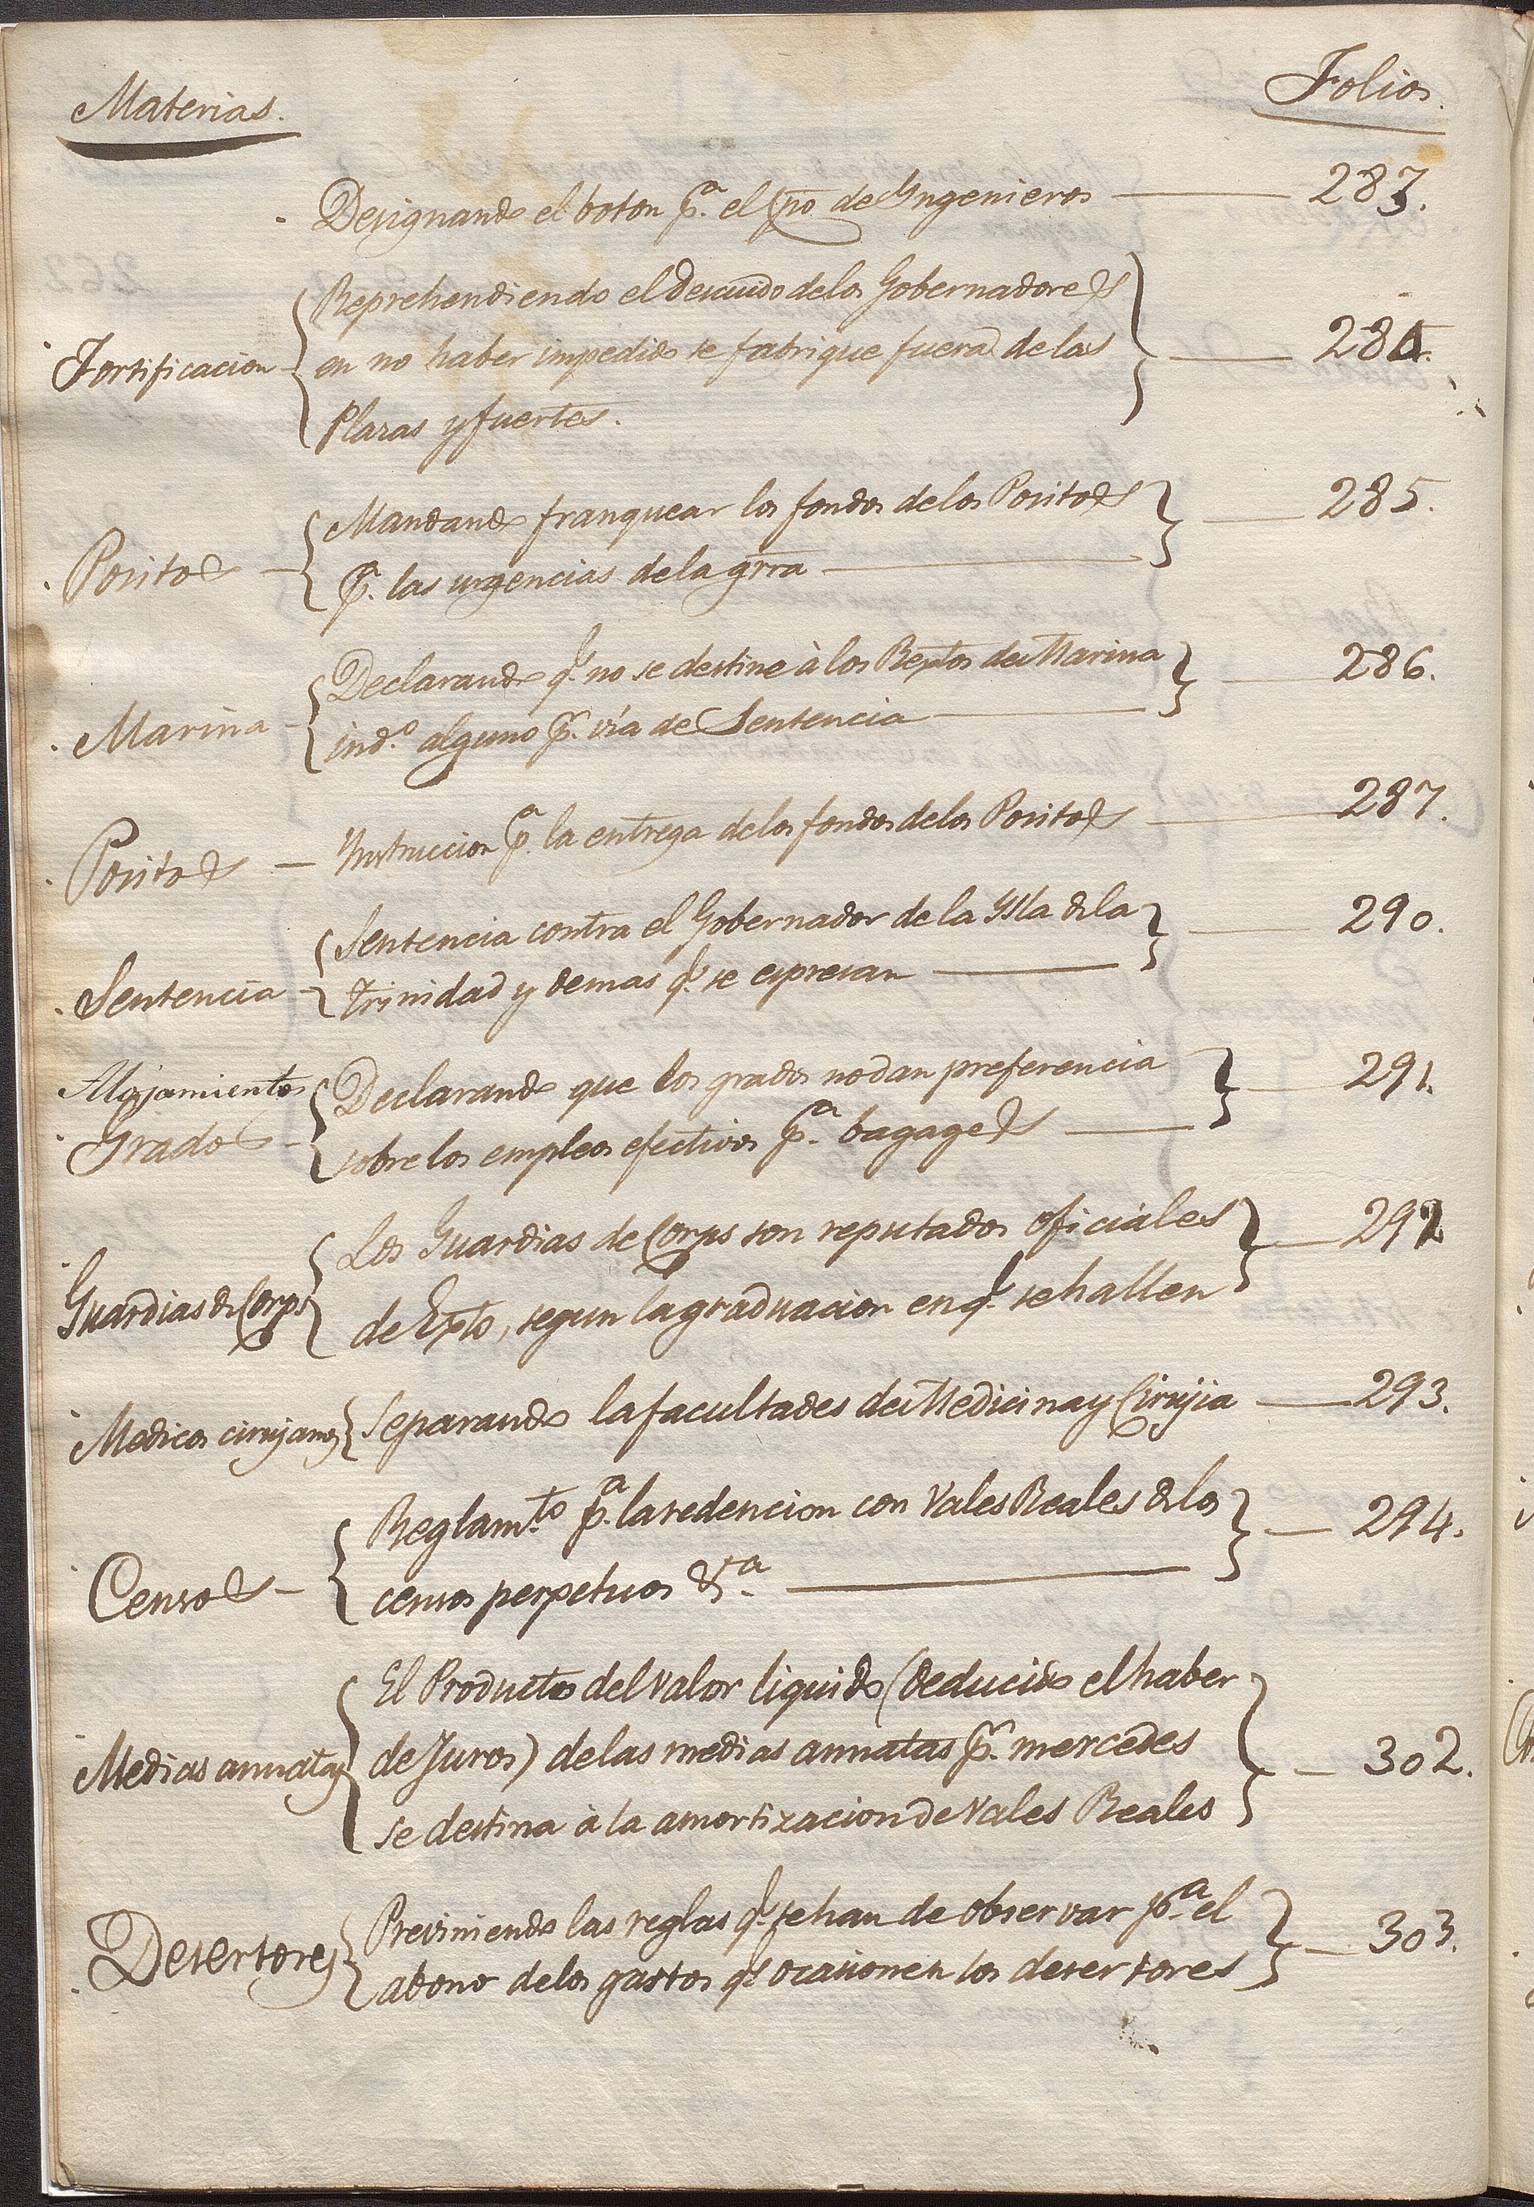 Materias.
Folios.
Designando el boton p.ª el Cpo de Yngenieros — 283.
Reprehendiendo el descuido de los Gobernadores
Fortificacion — en no haber impedido se fabrique fuera de las — 284.
Plazas y fuertes.
Mandando franquear los fondos de los Positos — 285.
Positos — p.ª las urgencias de la grra —
Declarando q.e no se destine à los Rextos de Marina — 286.
Marina — ind.º alguno p.r via de Sentencia —
Positos — Ynstruccion p.ª la entrega de los fondos de los Positos — 287.
Sentencia contra el Gobernador de la Ysla de la — 290.
Sentencia — Trinidad y demas q.e se espresan —
Alojamientos Declarando que los grados no dan preferencia — 291.
Grados — sobre los empleos efectivos p.ª bagages —
Los Guardias de Corps son reputados oficiales — 292
Guardias de Corps de Exto, segun la graduacion en q.e se hallen
Medicos cirujanos Separando la facultades de Medicina y Cirujia — 293.
Reglam.to p.ª la redencion con Vales Reales de los — 294.
Censos — censos perpetuos &.ª —
El Producto del valor liquido (deducido el haber
Medias annatas de Juros) de las medias annatas p.r mercedes — 302.
se destina à la amortizacion de Vales Reales
Previniendo las reglas q.e se han de observar p.ª el
Desertores abono de los gastos q.e ocasionen los desertores — 303.